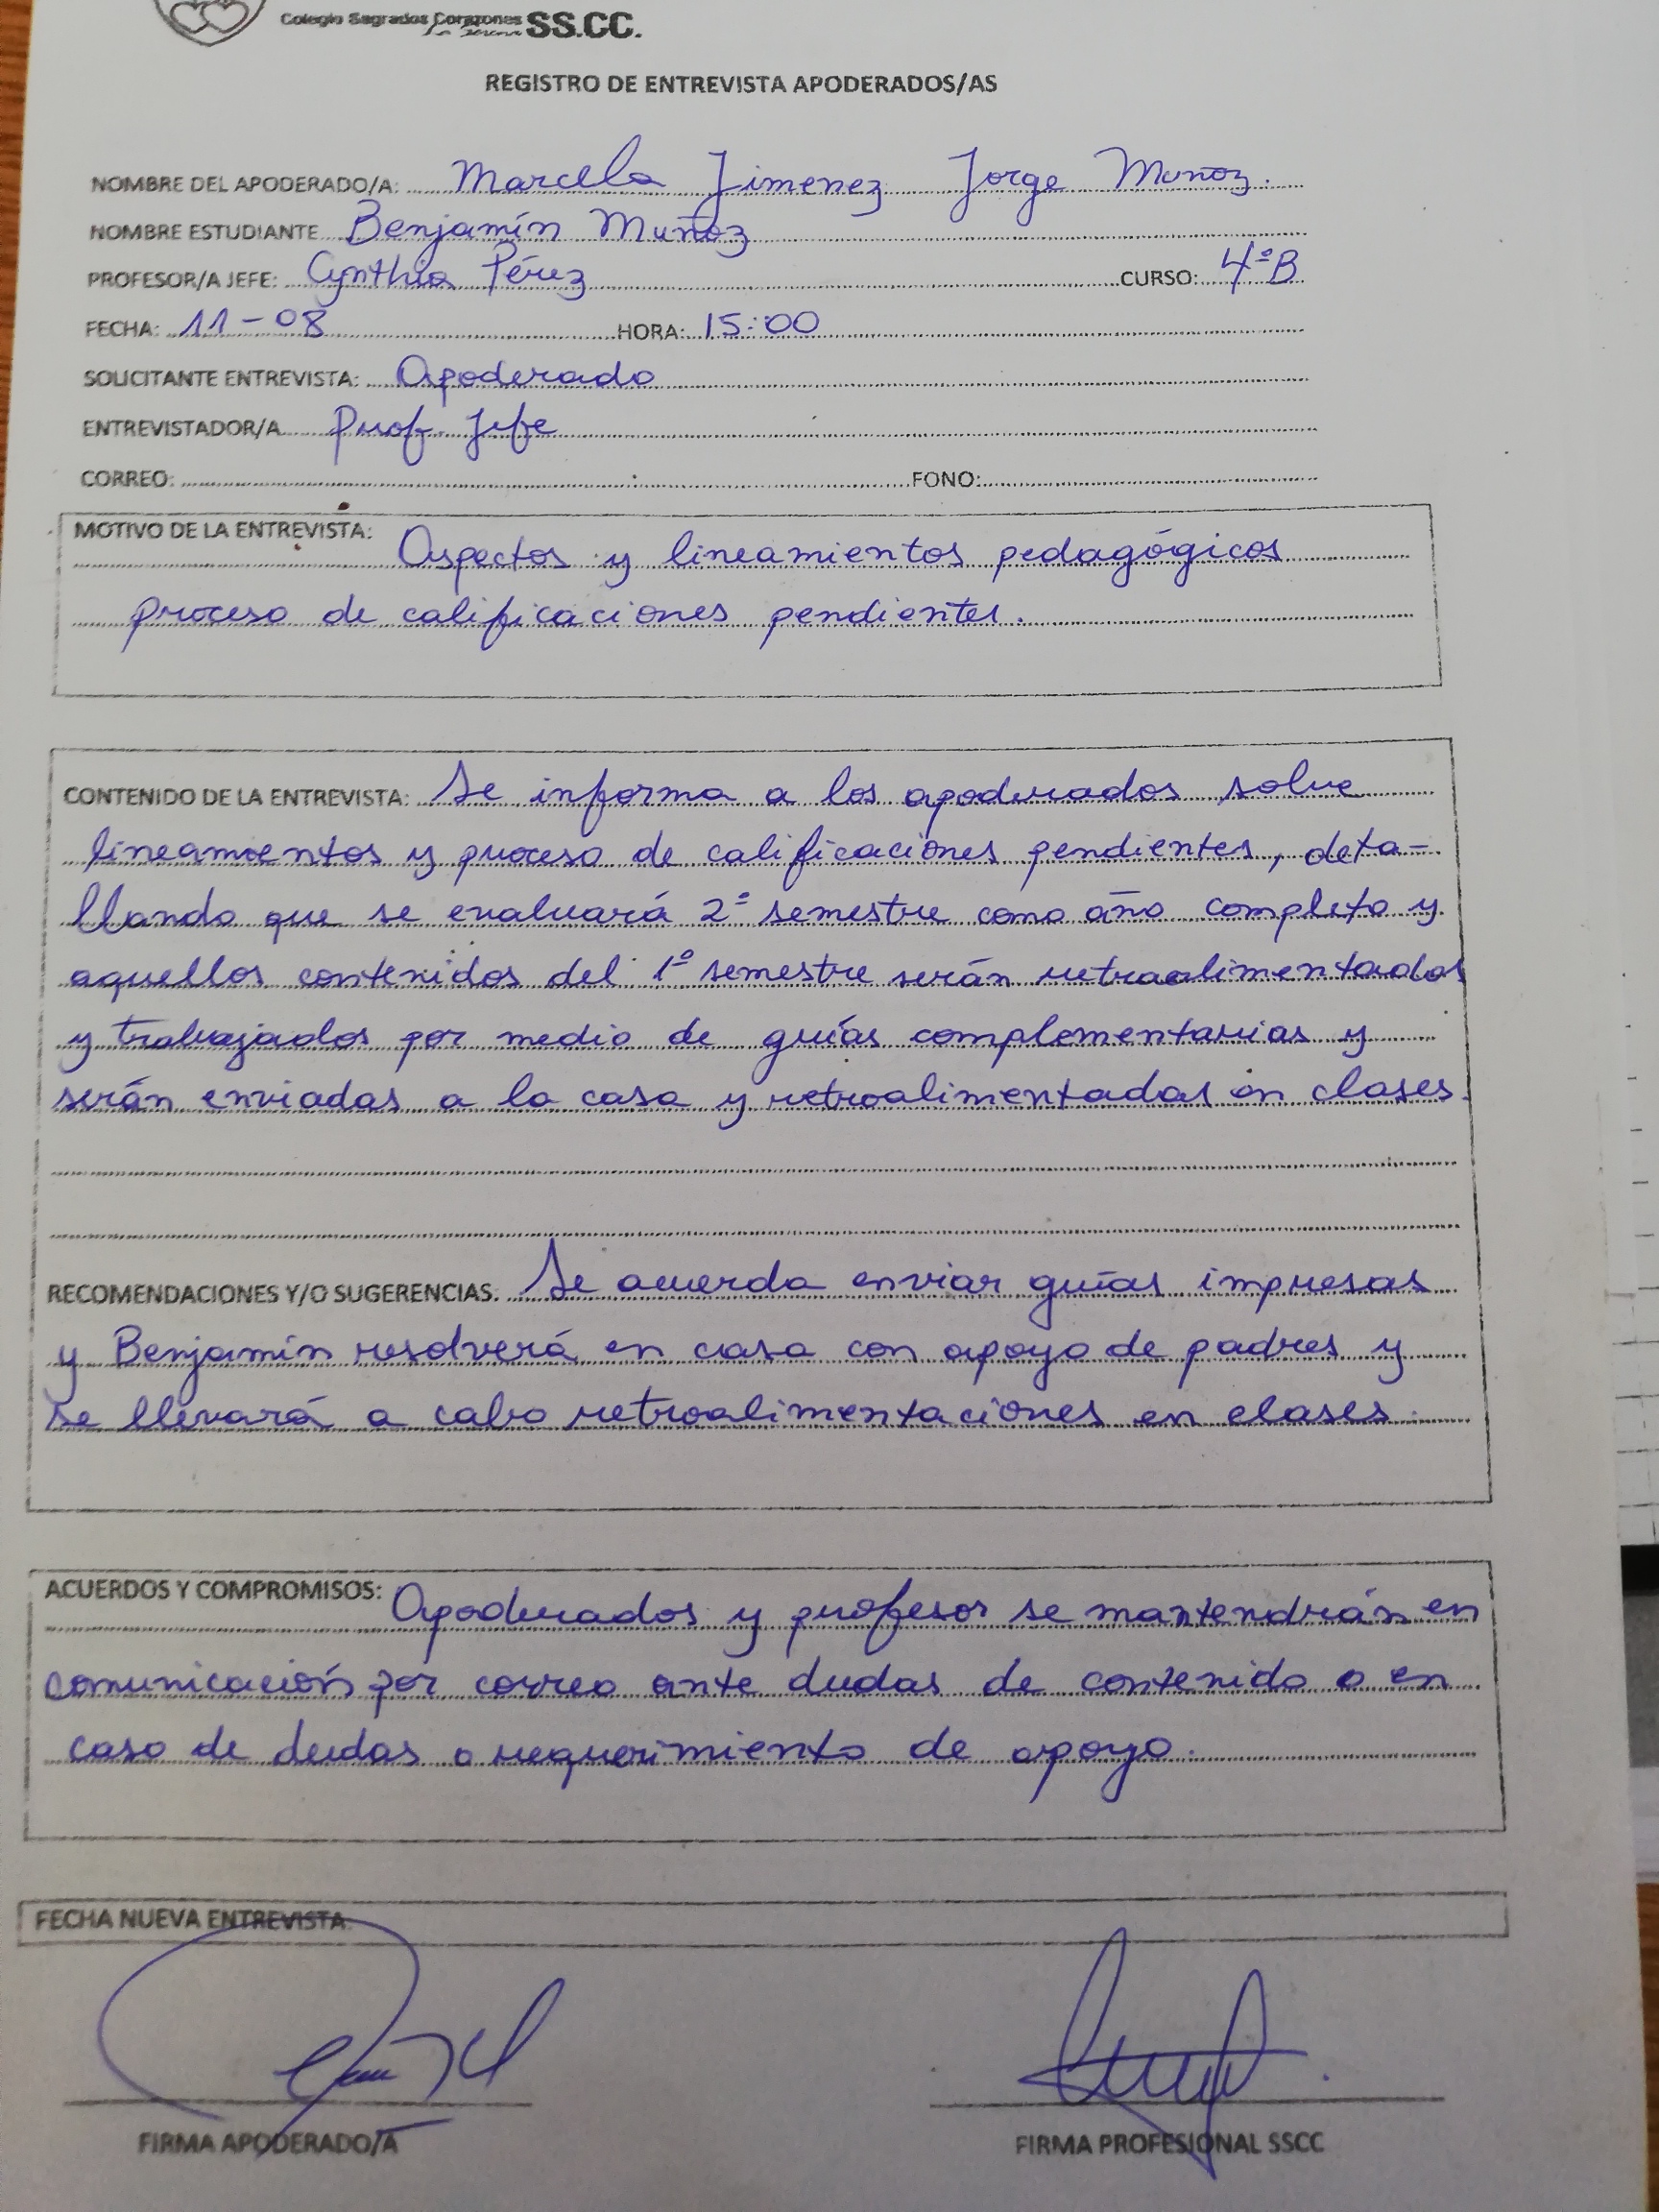 Colegio Sagrados Corazones SS.CC.
La Serena
REGISTRO DE ENTREVISTA APODERADOS/AS
NOMBRE DEL APODERADO/A: Marcela Jimenez Jorge Muñoz.
NOMBRE ESTUDIANTE Benjamín Muñoz
PROFESOR/A JEFE: Cynthia Pérez CURSO: 4ºB
FECHA: 11-08 HORA: 15:00
SOLICITANTE ENTREVISTA: Apoderado
ENTREVISTADOR/A Prof. Jefe
CORREO: FONO:
MOTIVO DE LA ENTREVISTA: Aspectos y lineamientos pedagógicos
proceso de calificaciones pendientes.
CONTENIDO DE LA ENTREVISTA: Se informa a los apoderados sobre
lineamientos y proceso de calificaciones pendientes, deta-
llando que se evaluará 2º semestre como año completo y
aquellos contenidos del 1º semestre serán retroalimentados
y trabajados por medio de guías complementarias y
serán enviadas a la casa y retroalimentadas en clases.
RECOMENDACIONES Y/O SUGERENCIAS. Se acuerda enviar guías impresas
y Benjamín resolverá en casa con apoyo de padres y
se llevará a cabo retroalimentaciones en clases.
ACUERDOS Y COMPROMISOS: Apoderados y profesor se mantendrán en
comunicación por correo ante dudas de contenido o en
caso de dudas o requerimiento de apoyo.
FECHA NUEVA ENTREVISTA:
FIRMA APODERADO/A FIRMA PROFESIONAL SSCC